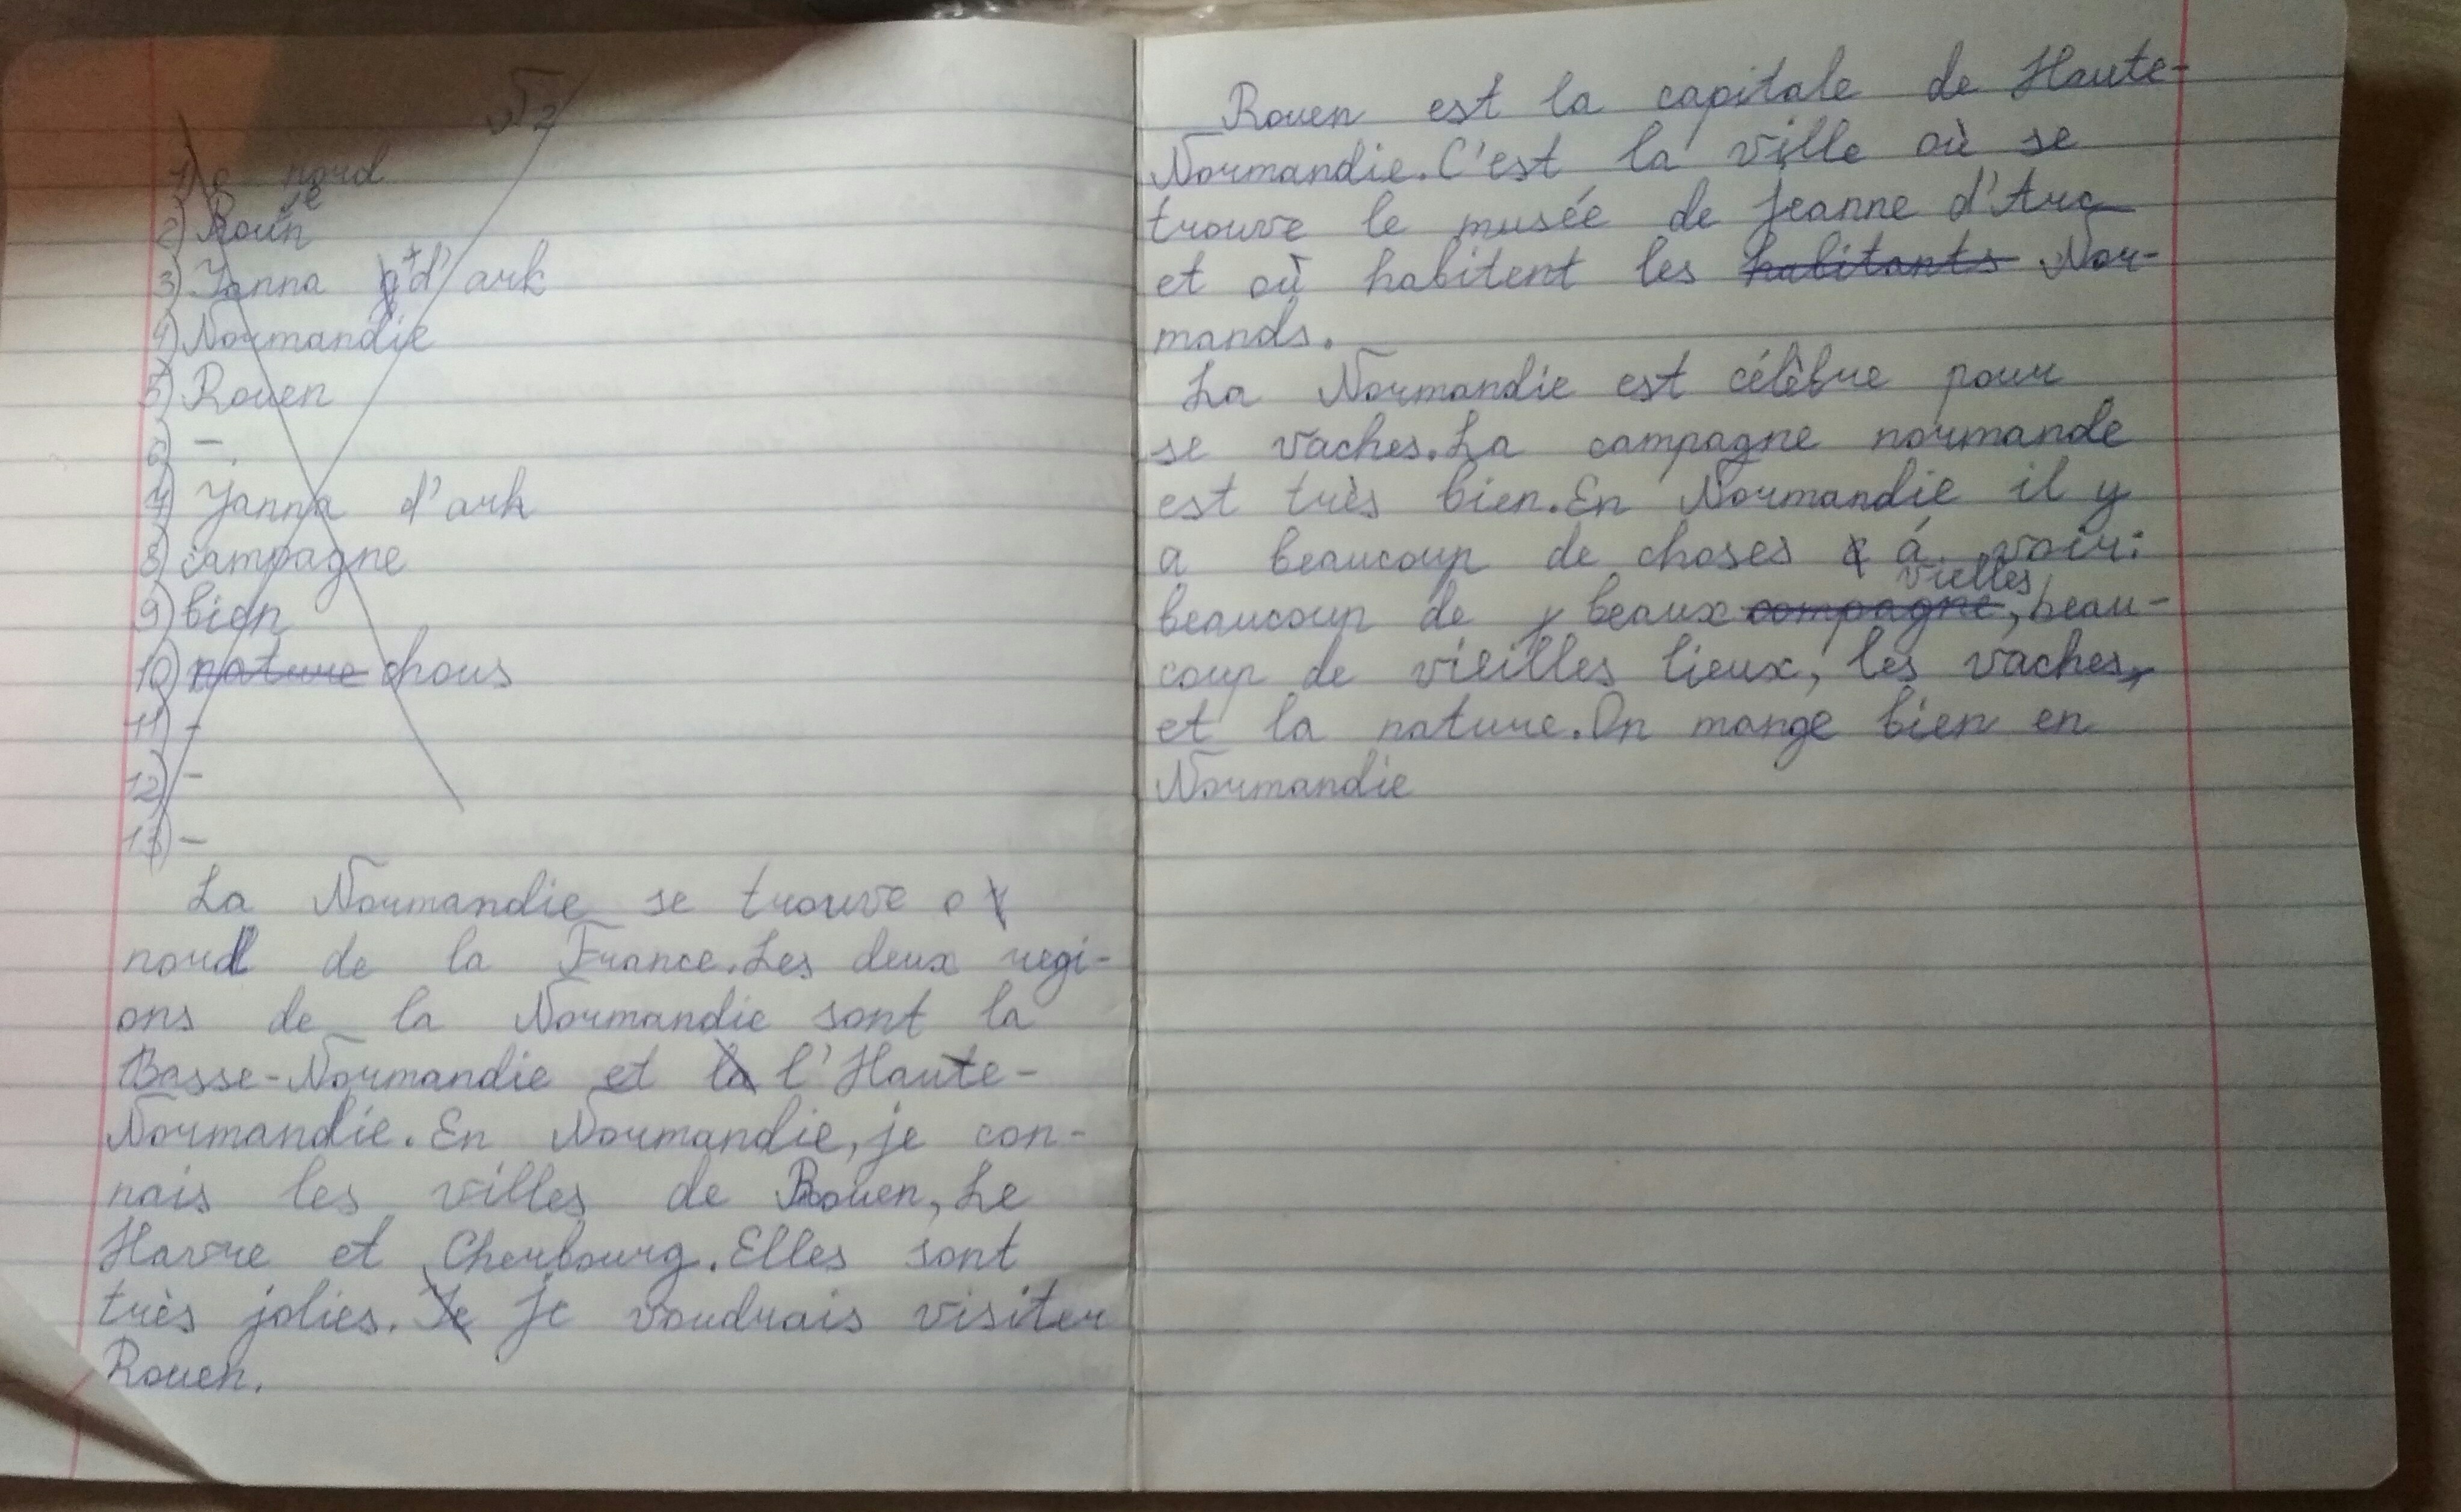 №2
1) e nord
2) Rouen
3) Janna d'ark
4) Normandie
5) Rouen
6) –
7) Janna d'ark
8) campagne
9) bien
10) nature chous
11) -
12) -
13) –
La Normandie se trouve
nord de la France. Les deux regi-
ons de la Normandie sont la
Basse-Normandie et la l'Haute-
Normandie. En Normandie, je con-
nais les villes de Rouen, Le
Havre et Cherbourg. Elles sont
très jolies. Je je voudrais visiter
Rouen.
Rouen est la capitale de Haute-
Normandie. C'est la ville où se
trouve le musée de Jeanne d'Arc
et où habitent les habitants Nor-
mands.
La Normandie est célèbre pour
se vaches. La campagne normande
est très bien. En Normandie il y
a beaucoup de choses á voir:
vielles
beaucoup de beaux compagne, beau-
coup de vieilles lieux, les vaches,
et la nature. On mange bien en
Normandie